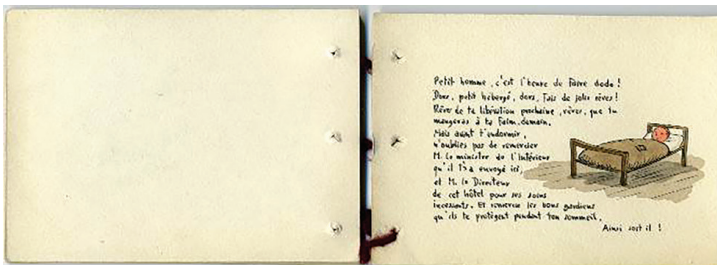 Petit homme, c'est l'heure de faire dodo !
Dors, petit hébergé, dors, fais de jolis rêves !
Rêve de ta libération prochaine, rêves, que tu
mangeras à ta faim, demain.
Mais avant t'endormir,
n'oublies pas de remercier
M. le ministre de l'Intérieur
qu'il t'a envoyé ici,
et M. le Directeur
de cet hôtel pour ses soins
incessants. Et remercie les bons gardiens
qu'ils te protègent pendant ton sommeil.
Ainsi soit il !